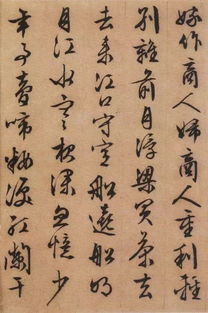 嫁作商人婦商人重利輕
別離前月浮梁買茶去
去來江口守空船遶船明
月江水寒夜深忽憶少
年事夢啼粧淚紅闌干